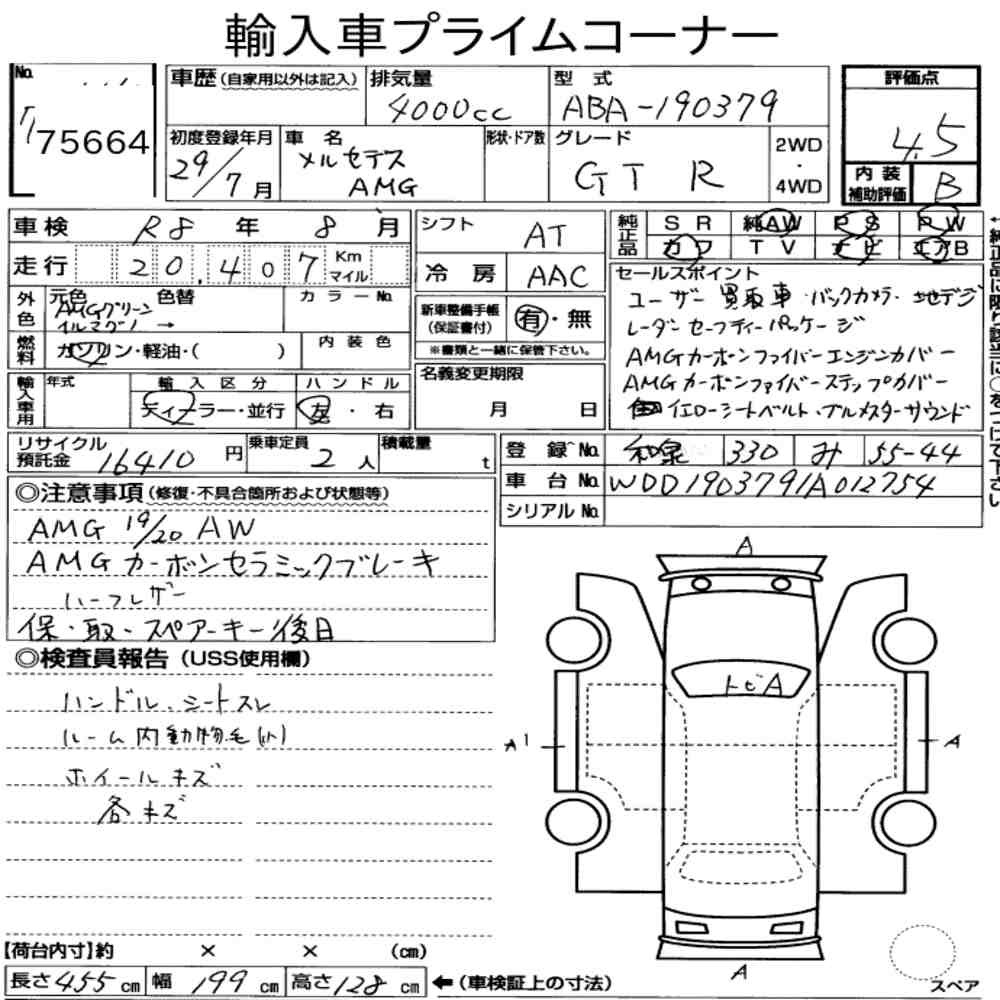 輸入車プライムコーナー
No.
75664
車歴(自家用以外は記入)
排気量
4000cc
型式
ABA-190379
評価点
4.5
初度登録年月
29/7月
車名
メルセデス
AMG
形状・ドア数
グレード
GT R
2WD
・
4WD
内装
補助評価
B
車検 R8 年 8 月
走行 20,407 Km マイル
シフト AT
冷房 AAC
純正品 SR 純AW PS PW
カワ TV ナビ エアB
←純正品に限り該当に○をつけて下さい
外色
元色 色替
AMGグリーン
→
カラーNo.
燃料
ガソリン・軽油・( )
内装色
新車整備手帳
(保証書付)
有・無
※書類と一緒に保管下さい。
セールスポイント
ユーザー買取車・バックカメラ・地デジ
レーダーセーフティーパッケージ
AMGカーボンファイバーエンジンカバー
AMGカーボンファイバーステップカバー
イエローシートベルト・ブルメスターサウンド
輸入車用
年式
輸入区分
ディーラー・並行
ハンドル
左・右
名義変更期限
月 日
リサイクル
預託金 16410 円
乗車定員 2 人
積載量 t
登録No. 和泉 330 み 55-44
車台No. WDD1903791A012754
シリアルNo.
◎注意事項(修復・不具合箇所および状態等)
AMG 19/20 AW
AMG カーボンセラミックブレーキ
ハーフレザー
保・取・スペアーキー後日
◎検査員報告(USS使用欄)
ハンドル、シートスレ
ルーム内動物毛(小)
ホイールキズ
各キズ
A
トビA
A1
A
A
スペア
【荷台内寸】約 × × (cm)
長さ455cm 幅199cm 高さ128cm ←(車検証上の寸法)